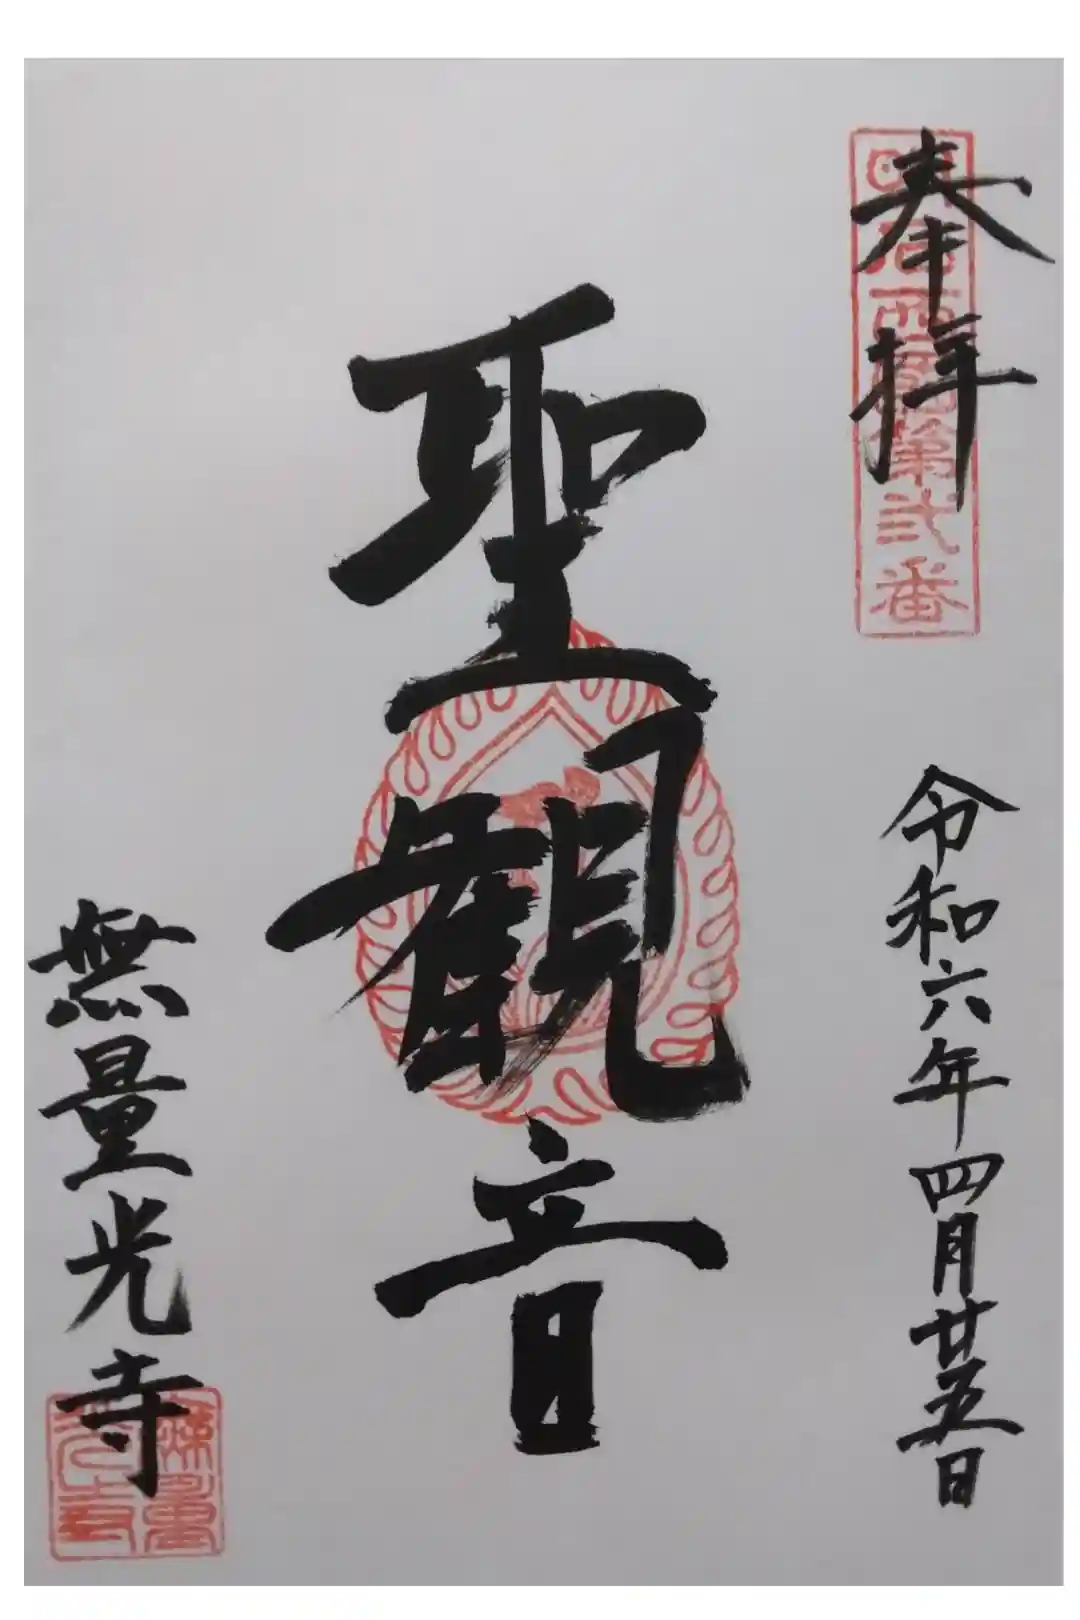 奉拝
明石西国第弐番
令和六年四月廿五日
聖観音
無量光寺
無量光寺